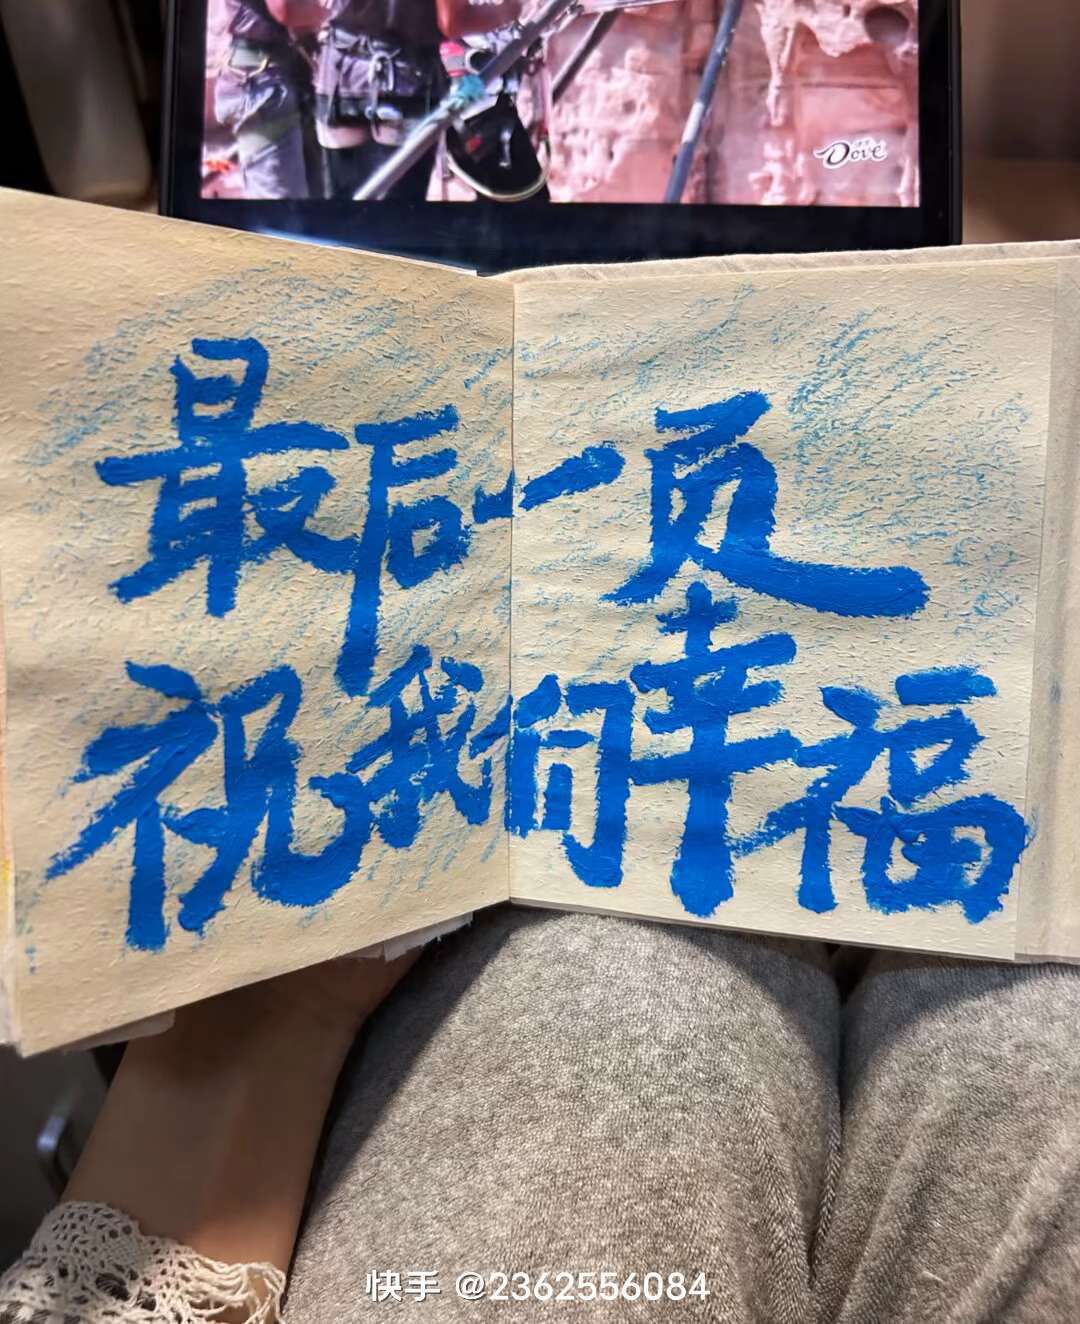 Dove
最后一页
祝我们幸福
快手 @2362556084